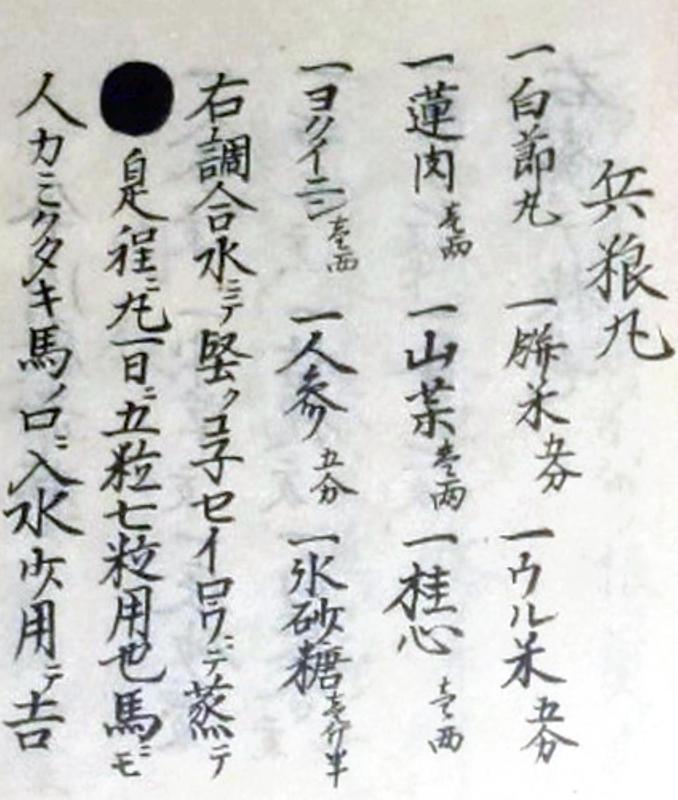 兵粮丸
一白節丸 一餅米 五分 一ウル米 五分
一蓮肉 壱両 一山茱 壱両 一桂心 壱両
一ヨクイニン 壱両 一人参 五分 一氷砂糖 壱分半
右調合水ニテ堅クコ子セイロウニテ蒸テ
是程ニ丸一日ニ五粒七粒用也馬ニモ
人カミクタキ馬ノ口ニ入水少用テ吉